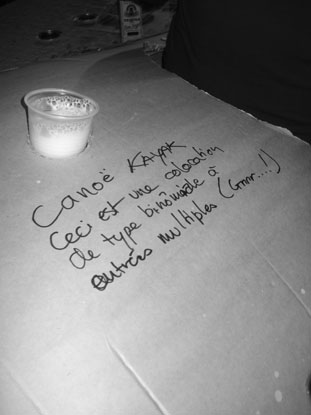 Canoë KAYAK
Ceci est une colocation
de type binômiale à
entrées multiples (Grrrr....!)